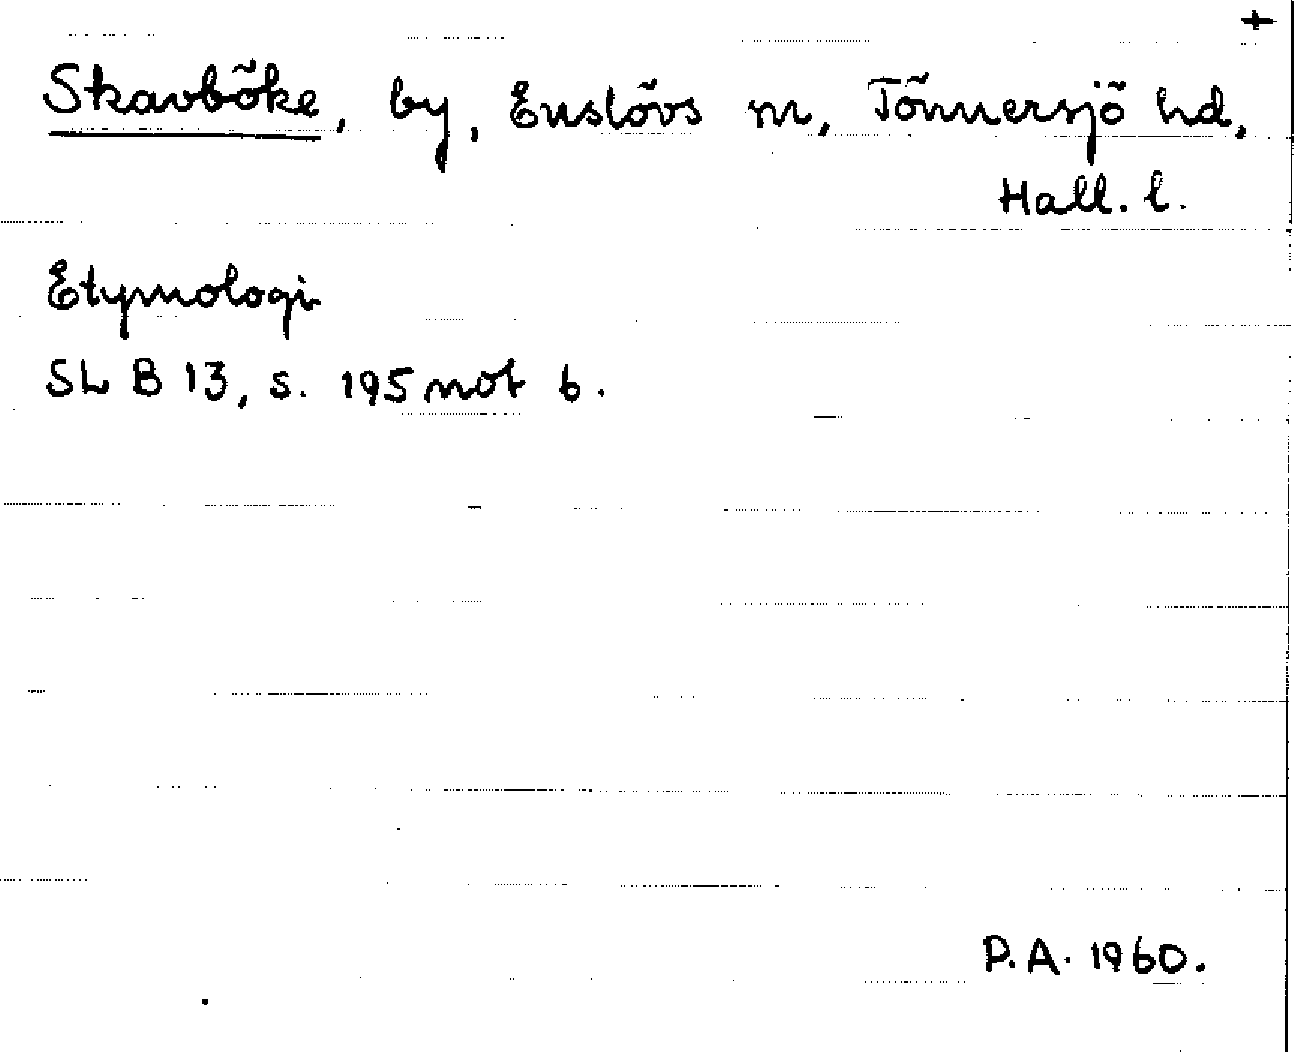 +
Skavböke, by, Enslövs sn, Tönnersjö hd,
Hall. l.
Etymologi
SL B 13, s. 195 not 6.
P.A. 1960.